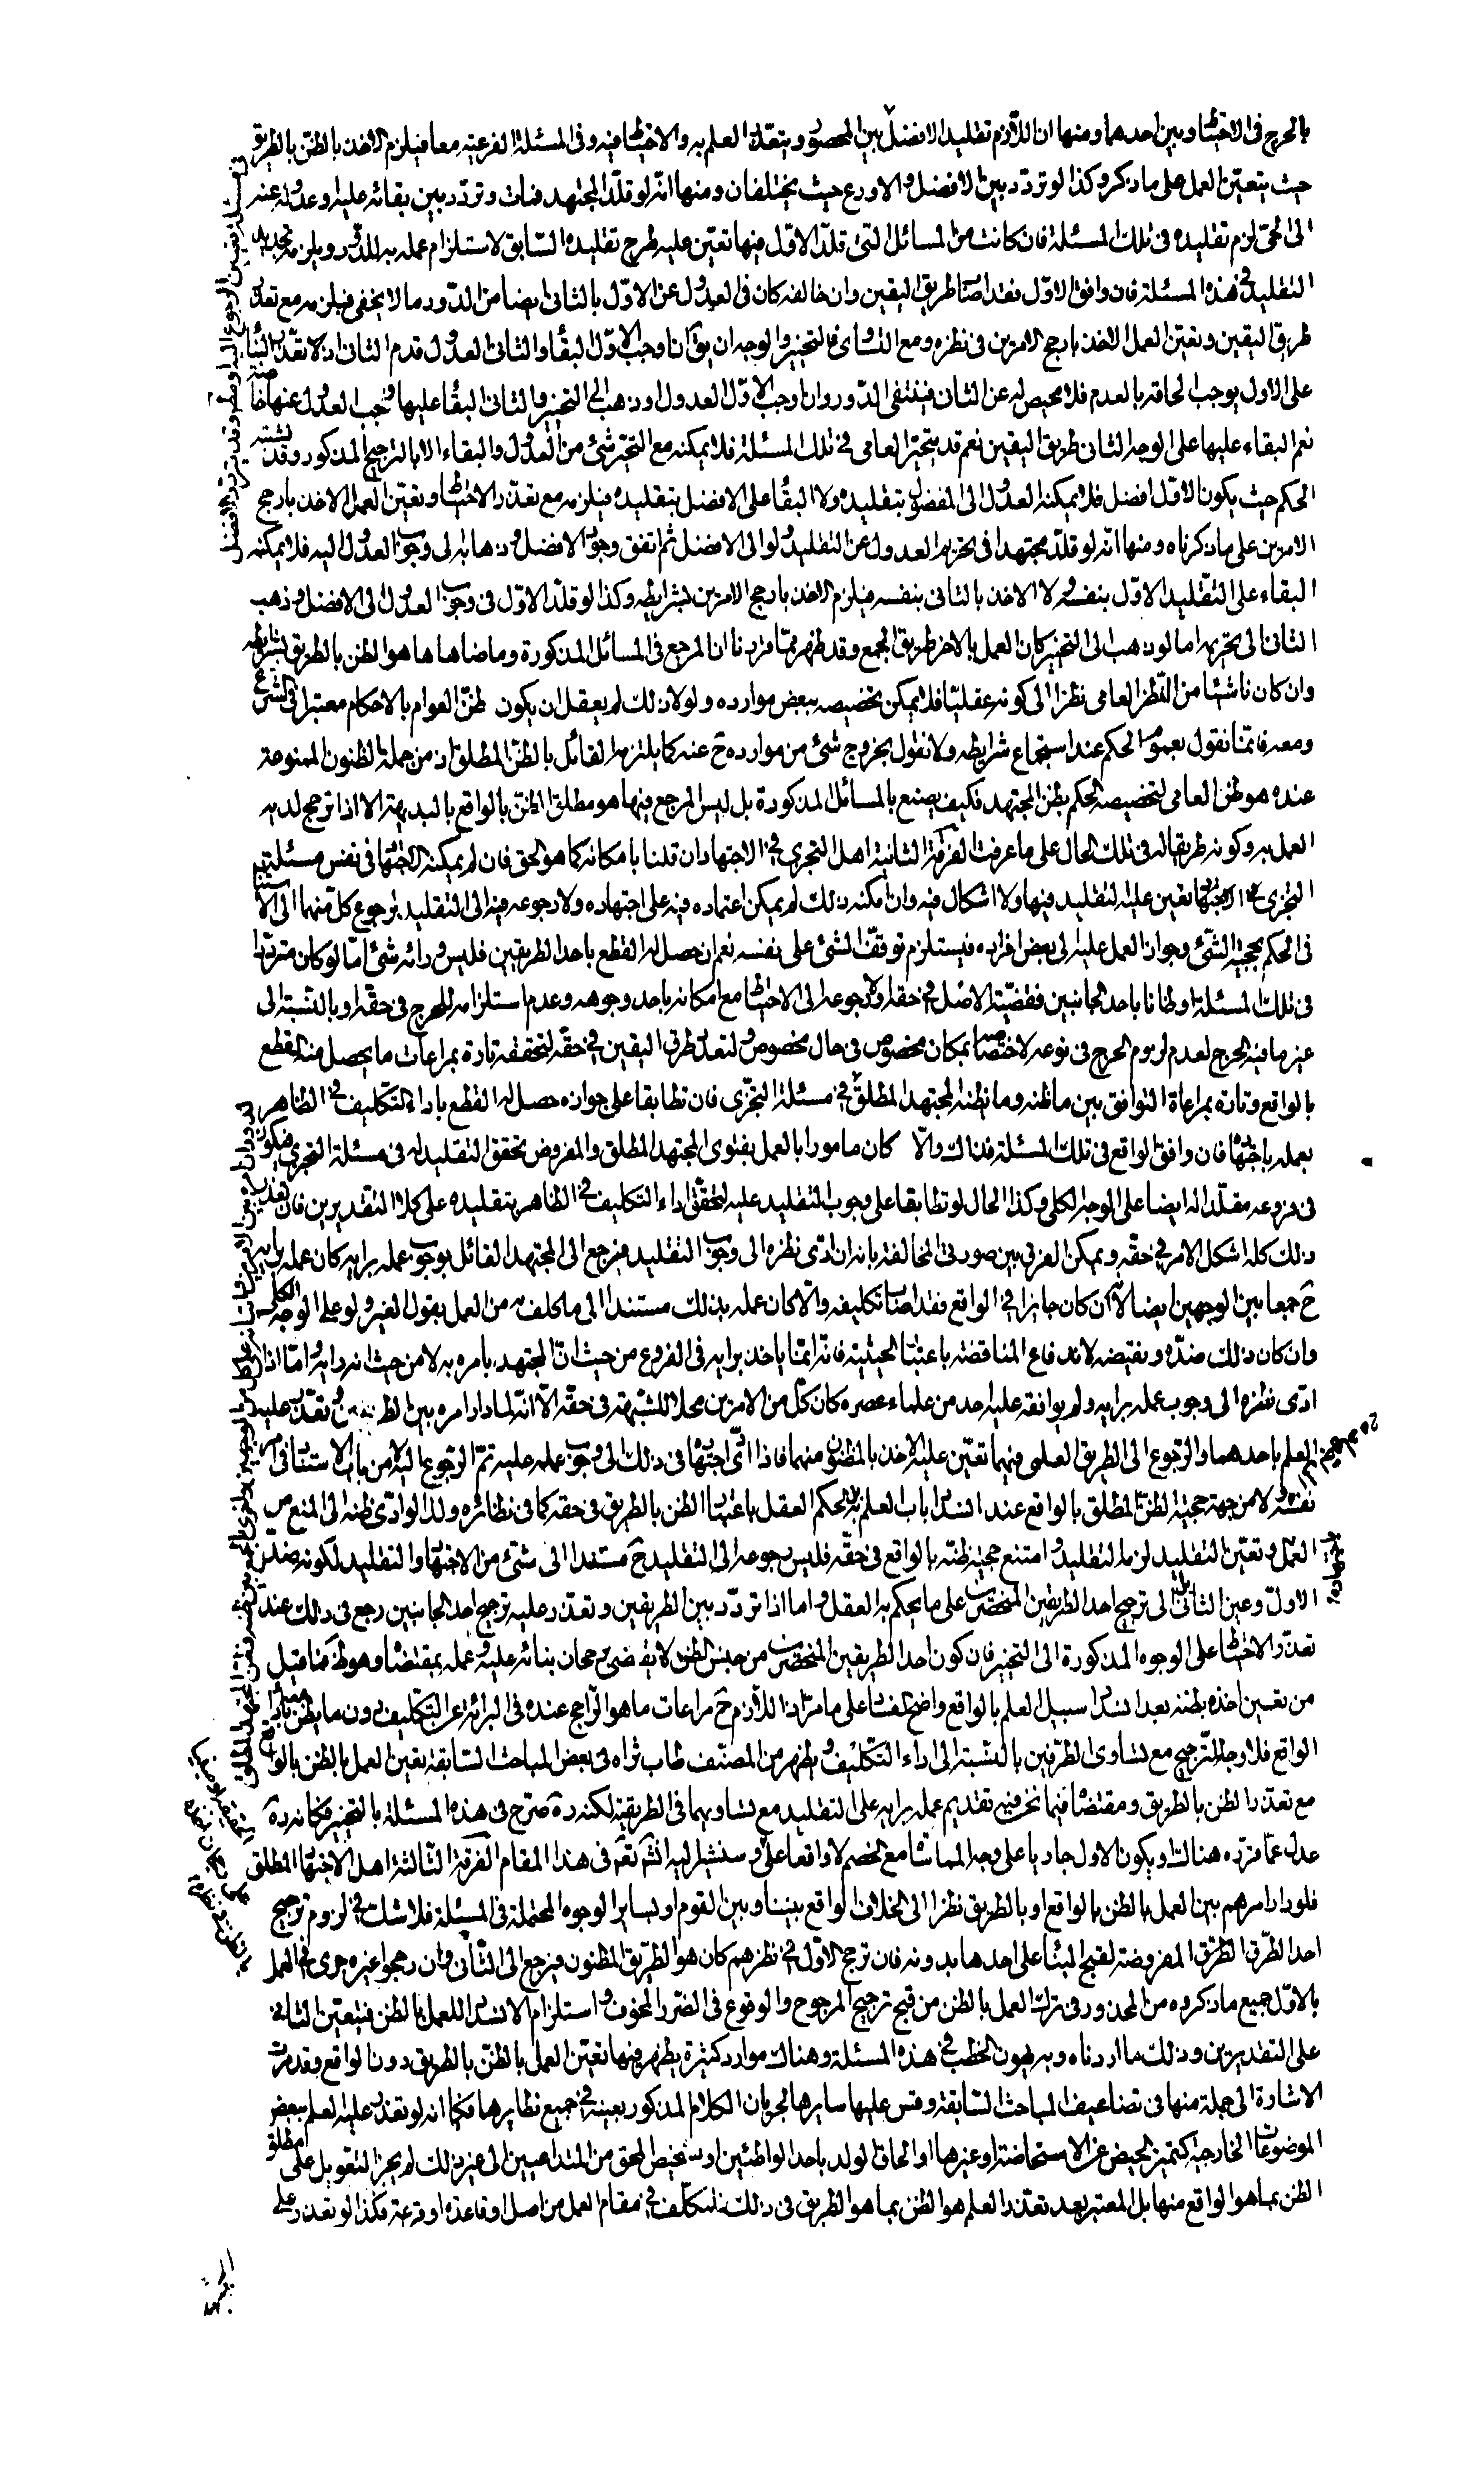 بالحرج فى الاحتياط وبين احدهما ومنها ان اللازم تقليد الافضل بين المحصور ويتعذر العلم به والاحتياط فيه وفى المسئلة الفرعية معا فيلزم الاخذ بالظن بالطريق
حيث يتعين العمل على ما ذكر وكذا لو تردد بين الافضل والاورع حيث يختلفان ومنها انه لو قلد المجتهد فمات وتردد بين بقائه عليه وعدوله عنه
الى الحى لزم تقليده فى تلك المسئلة فان كانت من المسائل التى قلد الاول فيها تعين عليه طرح تقليده السابق لاستلزام عمله به للدور ويلزمه تجديد
التقليد فى هذه المسئلة فان وافق الاول فقد اصاب طريق اليقين وان خالفه كان فى العدول عن الاول بالثانى ايضا من الدور ما لا يخفى فيلزمه مع تعذر
طريق اليقين وتعين العمل الاخذ بارجح الامرين فى نظره ومع التساوى فالتخيير والوجه ان يق ان اوجب الاول البقاء والثانى العدول قدم الثانى اذ لا تعذر
على الاول يوجب الحاقه بالعدم فلا محيص له عن الثانى فينتفى الدور وان اوجب الاول العدول او ذهب الى التخيير والثانى البقاء عليها وجب العدول عنها
نعم البقاء عليها على الوجه الثانى طريق اليقين نعم قد يتحير العامى فى تلك المسئلة فلا يمكنه مع التحير شئ من العدول والبقاء الا بالترجيح المذكور وقد يشتبه
الحكم حيث يكون الاول افضل فلا يمكنه العدول الى المفضول بتقليده ولا البقاء على الافضل بتقليده فيلزمه مع تعذر الاحتياط وتعين العمل الاخذ بارجح
الامرين على ما ذكرناه ومنها انه لو قلد مجتهدا فى تحريم العدول عن التقليد ولو الى الافضل ثم اتفق وجود الافضل وذهابه الى وجوب العدول اليه فلا يمكنه
البقاء على التقليد الاول بنفسه ولا الاخذ بالثانى بنفسه فيلزم الاخذ بارجح الامرين بشرايطه وكذا لو قلد الاول فى وجوب العدول الى الافضل وذهب
الثانى الى تحريمه اما لو ذهب الى التخيير كان العمل بالاخر طريق الجمع وقد ظهر مما قررنا ان المرجع فى المسائل المذكورة وما ضاهاها هو الظن بالطريق بشرايطه
وان كان ناشئا من النظر العامى نظرا الى كونه عقليا فلا يمكن تخصيصه ببعض موارده ولولا ذلك لم يعقل ان يكون ظن العوام بالاحكام معتبرا فى الشرع
ومعه فانما نقول بعموم الحكم عند استجماع شرايطه ولا نقول بخروج شئ من موارده ح عنه كما يلتزم القائل بالظن المطلق اذ من جملة الظنون الممنوعة
عنده هو ظن العامى لتخصيصه الحكم بظن المجتهد فكيف يصنع بالمسائل المذكورة بل ليس المرجع فيها هو مطلق الظن بالواقع بالبديهة الا اذا ترجح لديه
العمل به وكونه طريقا له فى تلك الحال على ما عرفت الفرقة الثانية اهل التجزى فى الاجتهاد ان قلنا بامكانه كما هو الحق فان لم يمكنه الاجتهاد فى نفس مسئلة
التجزى فى الاجتهاد تعين عليه التقليد فيها ولا اشكال فيه وان امكنه ذلك لم يمكن اعتماده فيه على اجتهاده ولا رجوعه فيه الى التقليد لرجوع كل منهما الى الاستناد
فى الحكم بحجية الشئ وجواز العمل عليه الى بعض افراده فيستلزم توقف الشئ على نفسه نعم ان حصل له القطع باحد الطريقين فليس ورائه شئ اما لو كان مترددا
فى تلك المسئلة او ظانا باحد الجانبين فقضية الاصل فى حقه اولا رجوعه الى الاحتياط مع امكانه باحد وجوهه وعدم استلزامه للحرج فى حقه او بالنسبة الى
غير ما فيه الحرج لعدم لزوم الحرج فى نوعه لاختصاصه بمكان مخصوص فى حال مخصوص ولتعدد طرق اليقين فى حقه لتحققه تارة بمراعات ما يحصل منه القطع
بالواقع وتارة بمراعاة التوافق بين ما ظنه وما يظنه المجتهد المطلق فى مسئلة التجزى فان تطابقا على جوازه حصل له القطع باداء التكليف فى الظاهر
بعمله باجتهاده فان وافق الواقع فى تلك المسئلة فذاك والا كان مامورا بالعمل بفتوى المجتهد المطلق والمفروض تحقق التقليد له فى مسئلة التجزى فيكون
فى فروعه مقلدا له ايضا على الوجه الكلى وكذا الحال لو تطابقا على وجوب التقليد عليه لتحقق اداء التكليف فى الظاهر بتقليده على كلا التقديرين فان تعذر
ذلك كله اشكل الامر فى حقه ويمكن الفرق بين صورتى المخالفة بانه ان ادى نظره الى وجوب التقليد فرجع الى المجتهد القائل بوجوب عمله برايه كان عمله برايه
ح جمعا بين الوجهين ايضا لانه ان كان جايزا فى الواقع فقد اصاب تكليفه والا كان عمله بذلك مستندا الى ما كلف به من العمل بقول الغير ولو على الوجه الكلى
وان كان ذلك ضده ونقيضه لاندفاع المناقضة باعتبار الحيثية فانه انما ياخذ برايه فى الفروع من حيث ان المجتهد يامره به لا من حيث انه رايه واما اذا
ادى نظره الى وجوب عمله برايه ولم يوافقه عليه احد من علماء عصره كان كل من الامرين محلا للشبهة فى حقه الا انه لما دار امره بين الطريقين وتعذر عليه
العلم باحدهما والرجوع الى الطريق العلمى فيهما تعين عليه الاخذ بالمظنون منهما فاذا ادى اجتهاده فى ذلك الى وجوب عمله عليه تم الرجوع اليه لا من باب الاستناد
لا من جهة حجية الظن المطلق بالواقع عند انسداد باب العلم به بل لحكم العقل باعتبار الظن بالطريق فى حقه كما فى نظائره ولذا لو ادى ظنه الى المنع من
العمل وتعين التقليد لزمه التقليد وامتنع حجية ظنه بالواقع فى حقه فليس رجوعه الى التقليد ح مستندا الى شئ من الاجتهاد والتقليد لكونه ضد
الاول وعين الثانى بل الى ترجيح احد الطريقين المنحصرين على ما يحكم به العقل واما اذا تردد بين الطريقين وتعذر عليه ترجيح احد الجانبين رجع فى ذلك عند
تعذر الاحتياط على الوجوه المذكورة الى التخيير فان كون احد الطريقين المنحصرين من جنس الظن لا يقضى برجحان بنائه عليه وعمله بمقتضاه وهو
من تعيين اخذه بظنه بعد انسداد سبيل العلم بالواقع واضح الفساد على ما مر اذ اللازم ح مراعات ما هو الراجح عنده فى البرائة عن التكليف دون ما يظن
الواقع فلا وجه للترجيح مع تساوى الطرفين بالنسبة الى اداء التكليف ويظهر من المصنف طاب ثراه فى بعض المباحث السابقة تعين العمل بالظن بالواقع
مع تعذر الظن بالطريق ومقتضاه فيما نحن فيه تقديم عمله برايه على التقليد مع تساويهما فى الطريقية لكنه ره صرح فى هذه المسئلة بالتخيير فكانه ره
عدل عما قرره هناك ويكون الاول جاريا على وجه المماشاة مع الخصم لا واقعا على وسنشير اليه انش تعم فى هذا المقام الفرقة الثالثة اهل الاجتهاد المطلق
فلو دار امرهم بين العمل بالظن بالواقع او بالطريق نظرا الى الخلاف الواقع بيننا وبين القوم او لساير الوجوه المحتملة فى المسئلة فلا شك فى لزوم ترجيح
احد الطرق المفروضة لقبح البناء على احدها بدونه فان ترجح الاول فى نظرهم كان هو الطريق المظنون فيرجع الى الثانى وان رجحوا غيره جرى فى العمل
بالاول جميع ما ذكروه من المحذور فى ترك العمل بالظن من قبح ترجيح المرجوح والوقوع فى الضرر المخوف واستلزام الانسداد للعمل بالظن فيتعين الثانى
على التقديرين وذلك ما اردناه وبه يهون الخطب فى هذه المسئلة وهناك موارد كثيرة يظهر فيها تعين العمل بالظن بالطريق دون الواقع وقد مرت
الاشارة الى جملة منها فى تضاعيف المباحث السابقة وقس عليها سايرها لجريان الكلام المذكور بعينه فى جميع نظايرها فكما انه لو تعذر عليه العلم ببعض
الموضوعات الخارجية كتميز الحيض عن الاستحاضة او غيرها او الحاق الولد باحد الواطئين او تشخيص المحق من المتداعيين الى غير ذلك لم يجز التعويل على مطلق
الظن بما هو الواقع منها بل المعتبر بعد تعذر العلم هو الظن بما هو الطريق فى ذلك للمكلف فى مقام العمل من اصل او قاعدة او قرعة فكذا لو تعذر على